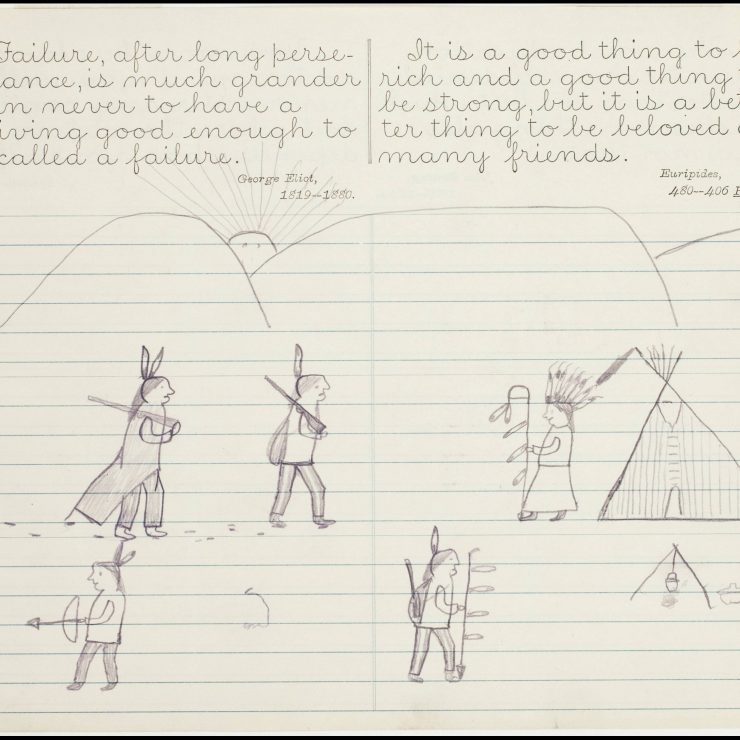 Failure, after long perse-
ance, is much grander
an never to have a
iving good enough to
called a failure.
George Eliot,
1819--1880.
It is a good thing to
rich and a good thing
be strong, but it is a bet
ter thing to be beloved
many friends.
Euripides,
480--406 B